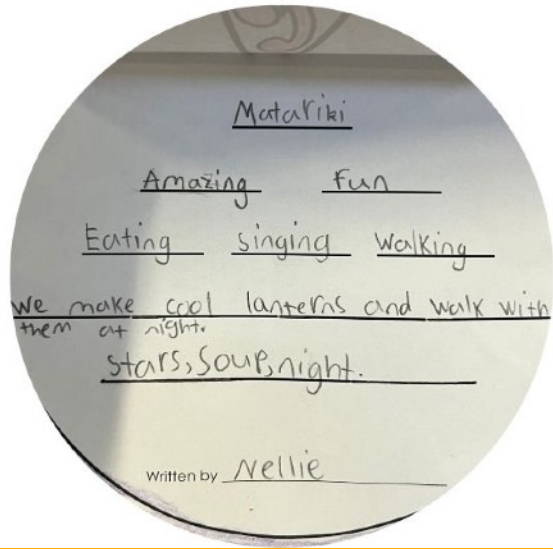 Matariki
Amazing Fun
Eating singing Walking
We make cool lanterns and walk with
them at night.
stars, Soup, night.
Written by Nellie